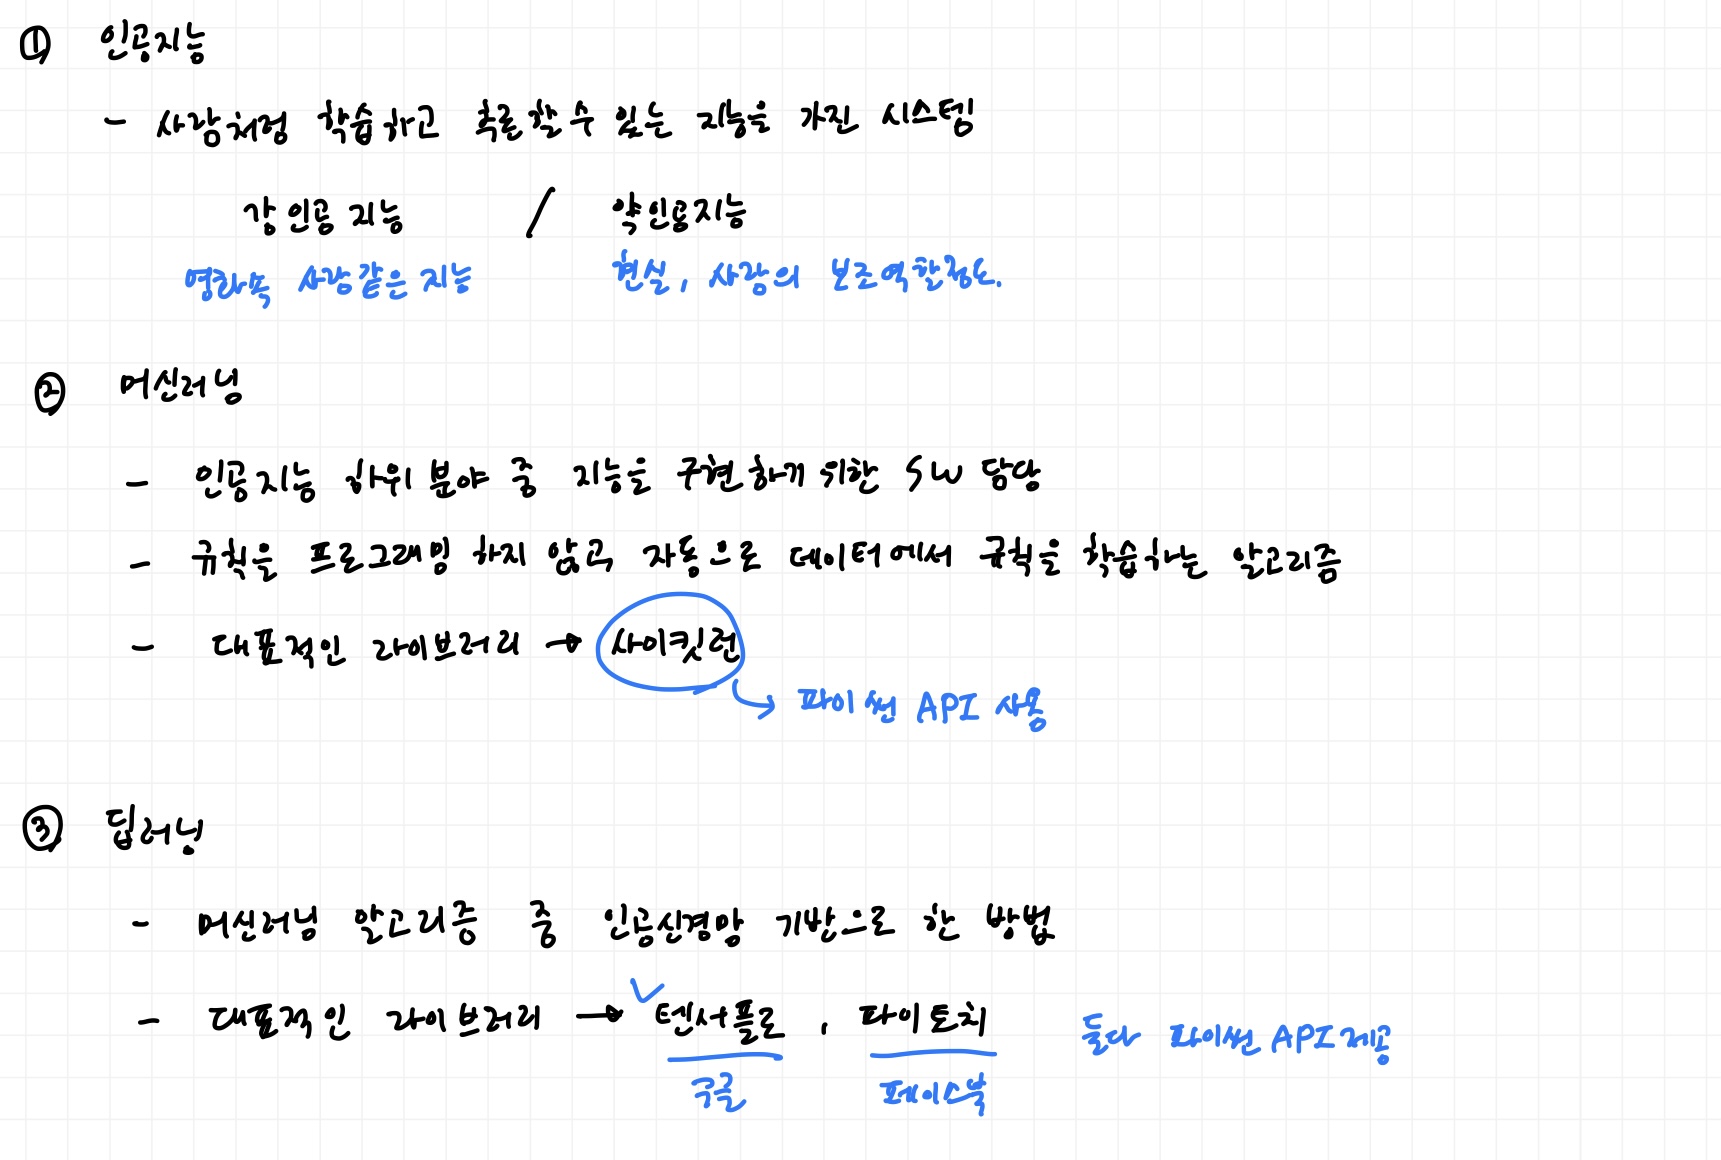 ① 인공지능
- 사람처럼 학습하고 추론할 수 있는 지능을 가진 시스템
강인공지능 / 약인공지능
영화속 사람같은 지능 현실, 사람의 보조역할정도.
② 머신러닝
- 인공지능 하위 분야 중 지능을 구현하기 위한 SW 담당
- 규칙을 프로그래밍 하지 않고 자동으로 데이터에서 규칙을 학습하는 알고리즘
- 대표적인 라이브러리 → 사이킷런
↳ 파이썬 API 사용
③ 딥러닝
- 머신러닝 알고리즘 중 인공신경망 기반으로 한 방법
- 대표적인 라이브러리 → ✓텐서플로, 파이토치 둘다 파이썬 API 제공
구글 페이스북